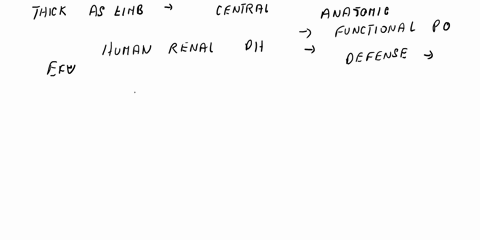 THICK AS LIMB → CENTRAL ANATOMIC
→ FUNCTIONAL PO
HUMAN RENAL PH → DEFENSE →